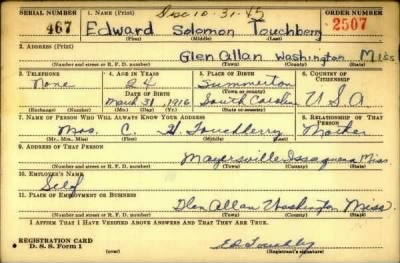 SERIAL NUMBER 1. NAME (Print) Dec 10-31-45 ORDER NUMBER
467 Edward Solomon Touchberry 2507
(First) (Middle) (Last)
2. ADDRESS (Print)
Glen Allan Washington Miss
(Number and street or R. F. D. number) (Town) (County) (State)
3. TELEPHONE 4. AGE IN YEARS 5. PLACE OF BIRTH 6. COUNTRY OF CITIZENSHIP
None 24 Summerton
DATE OF BIRTH (Town or county)
March 31, 1916 South Carolina U S A
(Exchange) (Number) (Mo.) (Day) (Yr.) (State or country)
7. NAME OF PERSON WHO WILL ALWAYS KNOW YOUR ADDRESS 8. RELATIONSHIP OF THAT PERSON
Mrs. C. H Touchberry Mother
(Mr., Mrs., Miss) (First) (Middle) (Last)
9. ADDRESS OF THAT PERSON
Mayersville Issaquena Miss.
(Number and street or R. F. D. number) (Town) (County) (State)
10. EMPLOYER'S NAME
Self
11. PLACE OF EMPLOYMENT OR BUSINESS
Glen Allan Washington Miss.
(Number and street or R. F. D. number) (Town) (County) (State)
I AFFIRM THAT I HAVE VERIFIED ABOVE ANSWERS AND THAT THEY ARE TRUE.
REGISTRATION CARD
D. S. S. Form 1
(Registrant's signature)